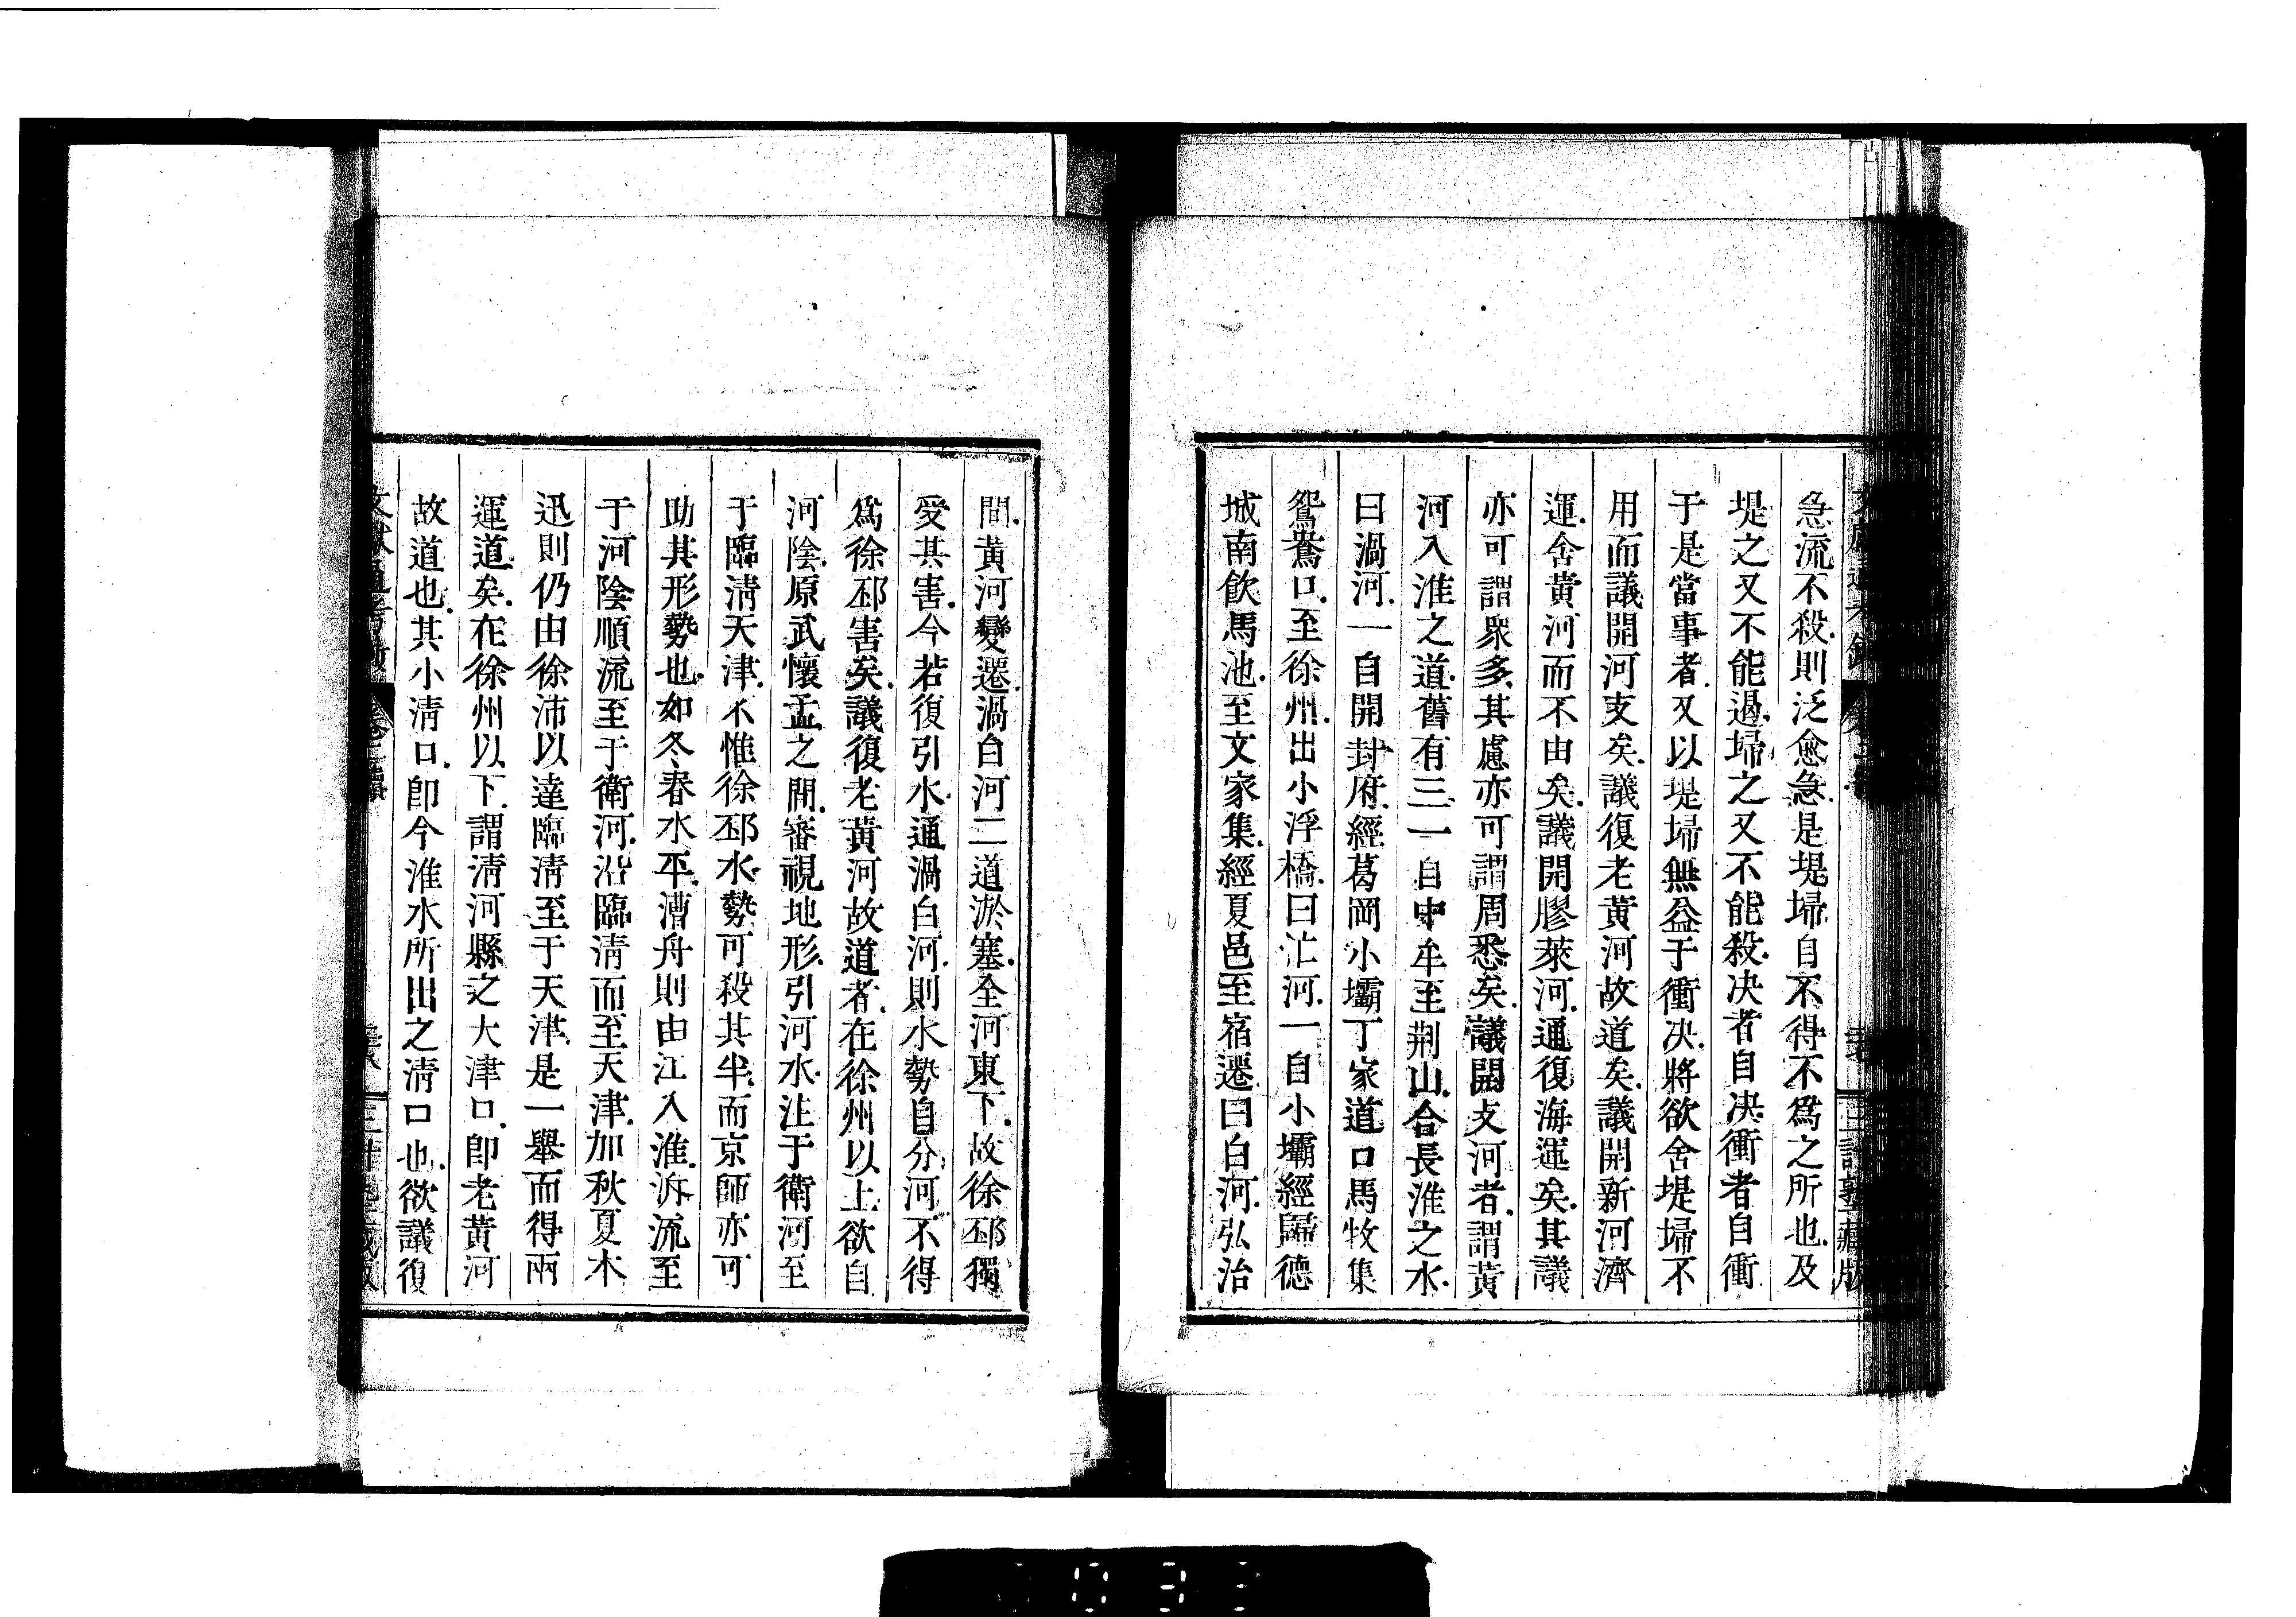 急流不殺則泛愈急是堤埽自不得不爲之所也及
堤之又不能遏埽之又不能殺決者自決衝者自衝
于是當事者又以堤埽無益于衝決將欲舍堤埽不
用而議開河支矣議復老黃河故道矣議開新河濟
運舍黃河而不由矣議開膠萊河通復海運矣其議
亦可謂衆多其慮亦可謂周悉矣議開支河者謂黃
河入淮之道舊有三一自中牟至荆山合長淮之水
曰渦河一自開封府經葛岡小壩丁家道口馬牧集
鴛鴦口至徐州出小浮橋曰汴河一自小壩經歸德
城南飲馬池至文家集經夏邑至宿遷曰白河弘治
間黃河變遷渦白河二道淤塞全河東下故徐邳獨
受其害今若復引水通渦白河則水勢自分河不得
爲徐邳害矣議復老黃河故道者在徐州以上欲自
河陰原武懷孟之間審視地形引河水注于衛河至
于臨淸天津不惟徐邳水勢可殺其半而京師亦可
助其形勢也如冬春水平漕舟則由江入淮泝流至
于河陰順流至于衛河沿臨淸而至天津加秋夏木
迅則仍由徐沛以達臨淸至于天津是一舉而得兩
運道矣在徐州以下謂淸河縣之大津口卽老黃河
故道也其小淸口卽今淮水所出之淸口也欲議復